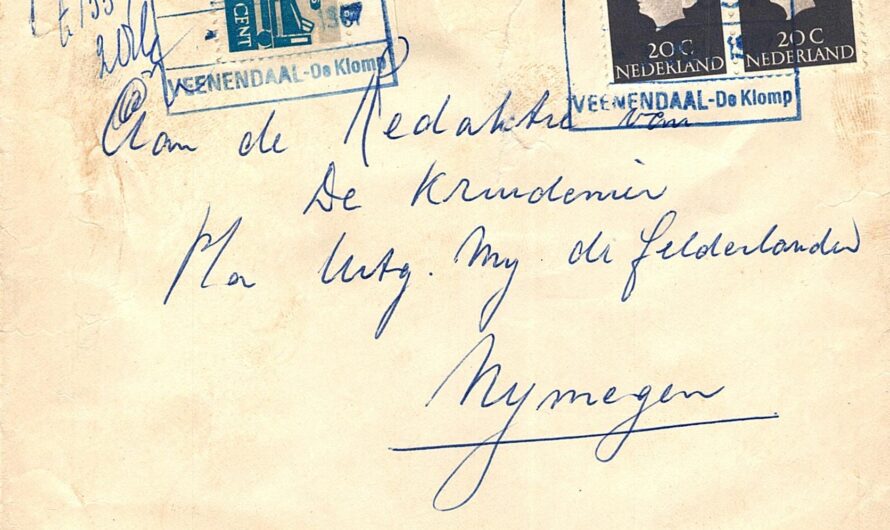 CENT
VEENENDAAL-De Klomp
20 C
NEDERLAND
20 C
NEDERLAND
VEENENDAAL-De Klomp
Aan de Redaktie van
De Kruidenier
p/a Uitg. My de Gelderlander
Nymegen